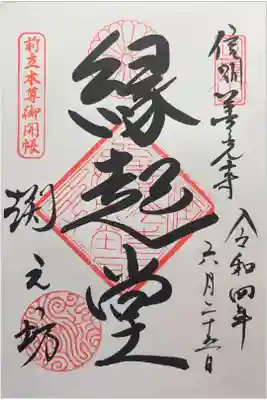 信州善光寺
令和四年
六月二十五日
縁起堂
前立本尊御開帳
淵之坊